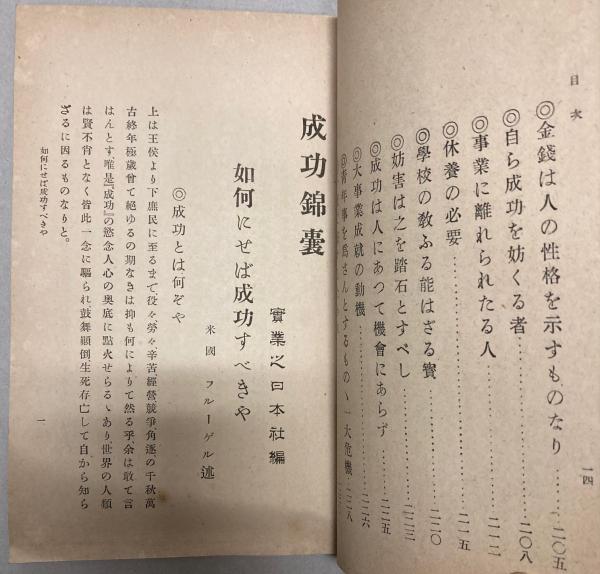 目次
◎金錢は人の性格を示すものなり……二〇五
◎自ら成功を妨くる者……二〇八
◎事業に離れられたる人……二一二
◎休養の必要……二一五
◎學校の敎ふる能はざる實……二二〇
◎妨害は之を踏石とすべし……二二三
◎成功は人にあつて機會にあらず……二二五
◎大事業成就の動機……二二六
◎靑年事を爲さんとするもの丶一大危機…二二八
一四
成功錦囊
實業之日本社編
如何にせば成功すべきや
米國 フルーゲル述
◎成功とは何ぞや
上は王侯より下庶民に至るまで役々勞々辛苦經營、競爭角逐の千秋萬
古終年極歲曾て絕ゆるの期なきは抑も何によりて然る乎、余は敢て言
はんとす、唯是『成功』の慾念人心の奧底に點火せらるヽあり世界の人類
は賢不肖となく皆此一念に驅られ鼓舞顚倒生死存亡して自から知ら
ざるに因るものなりと。
如何にせば成功すべきや
一